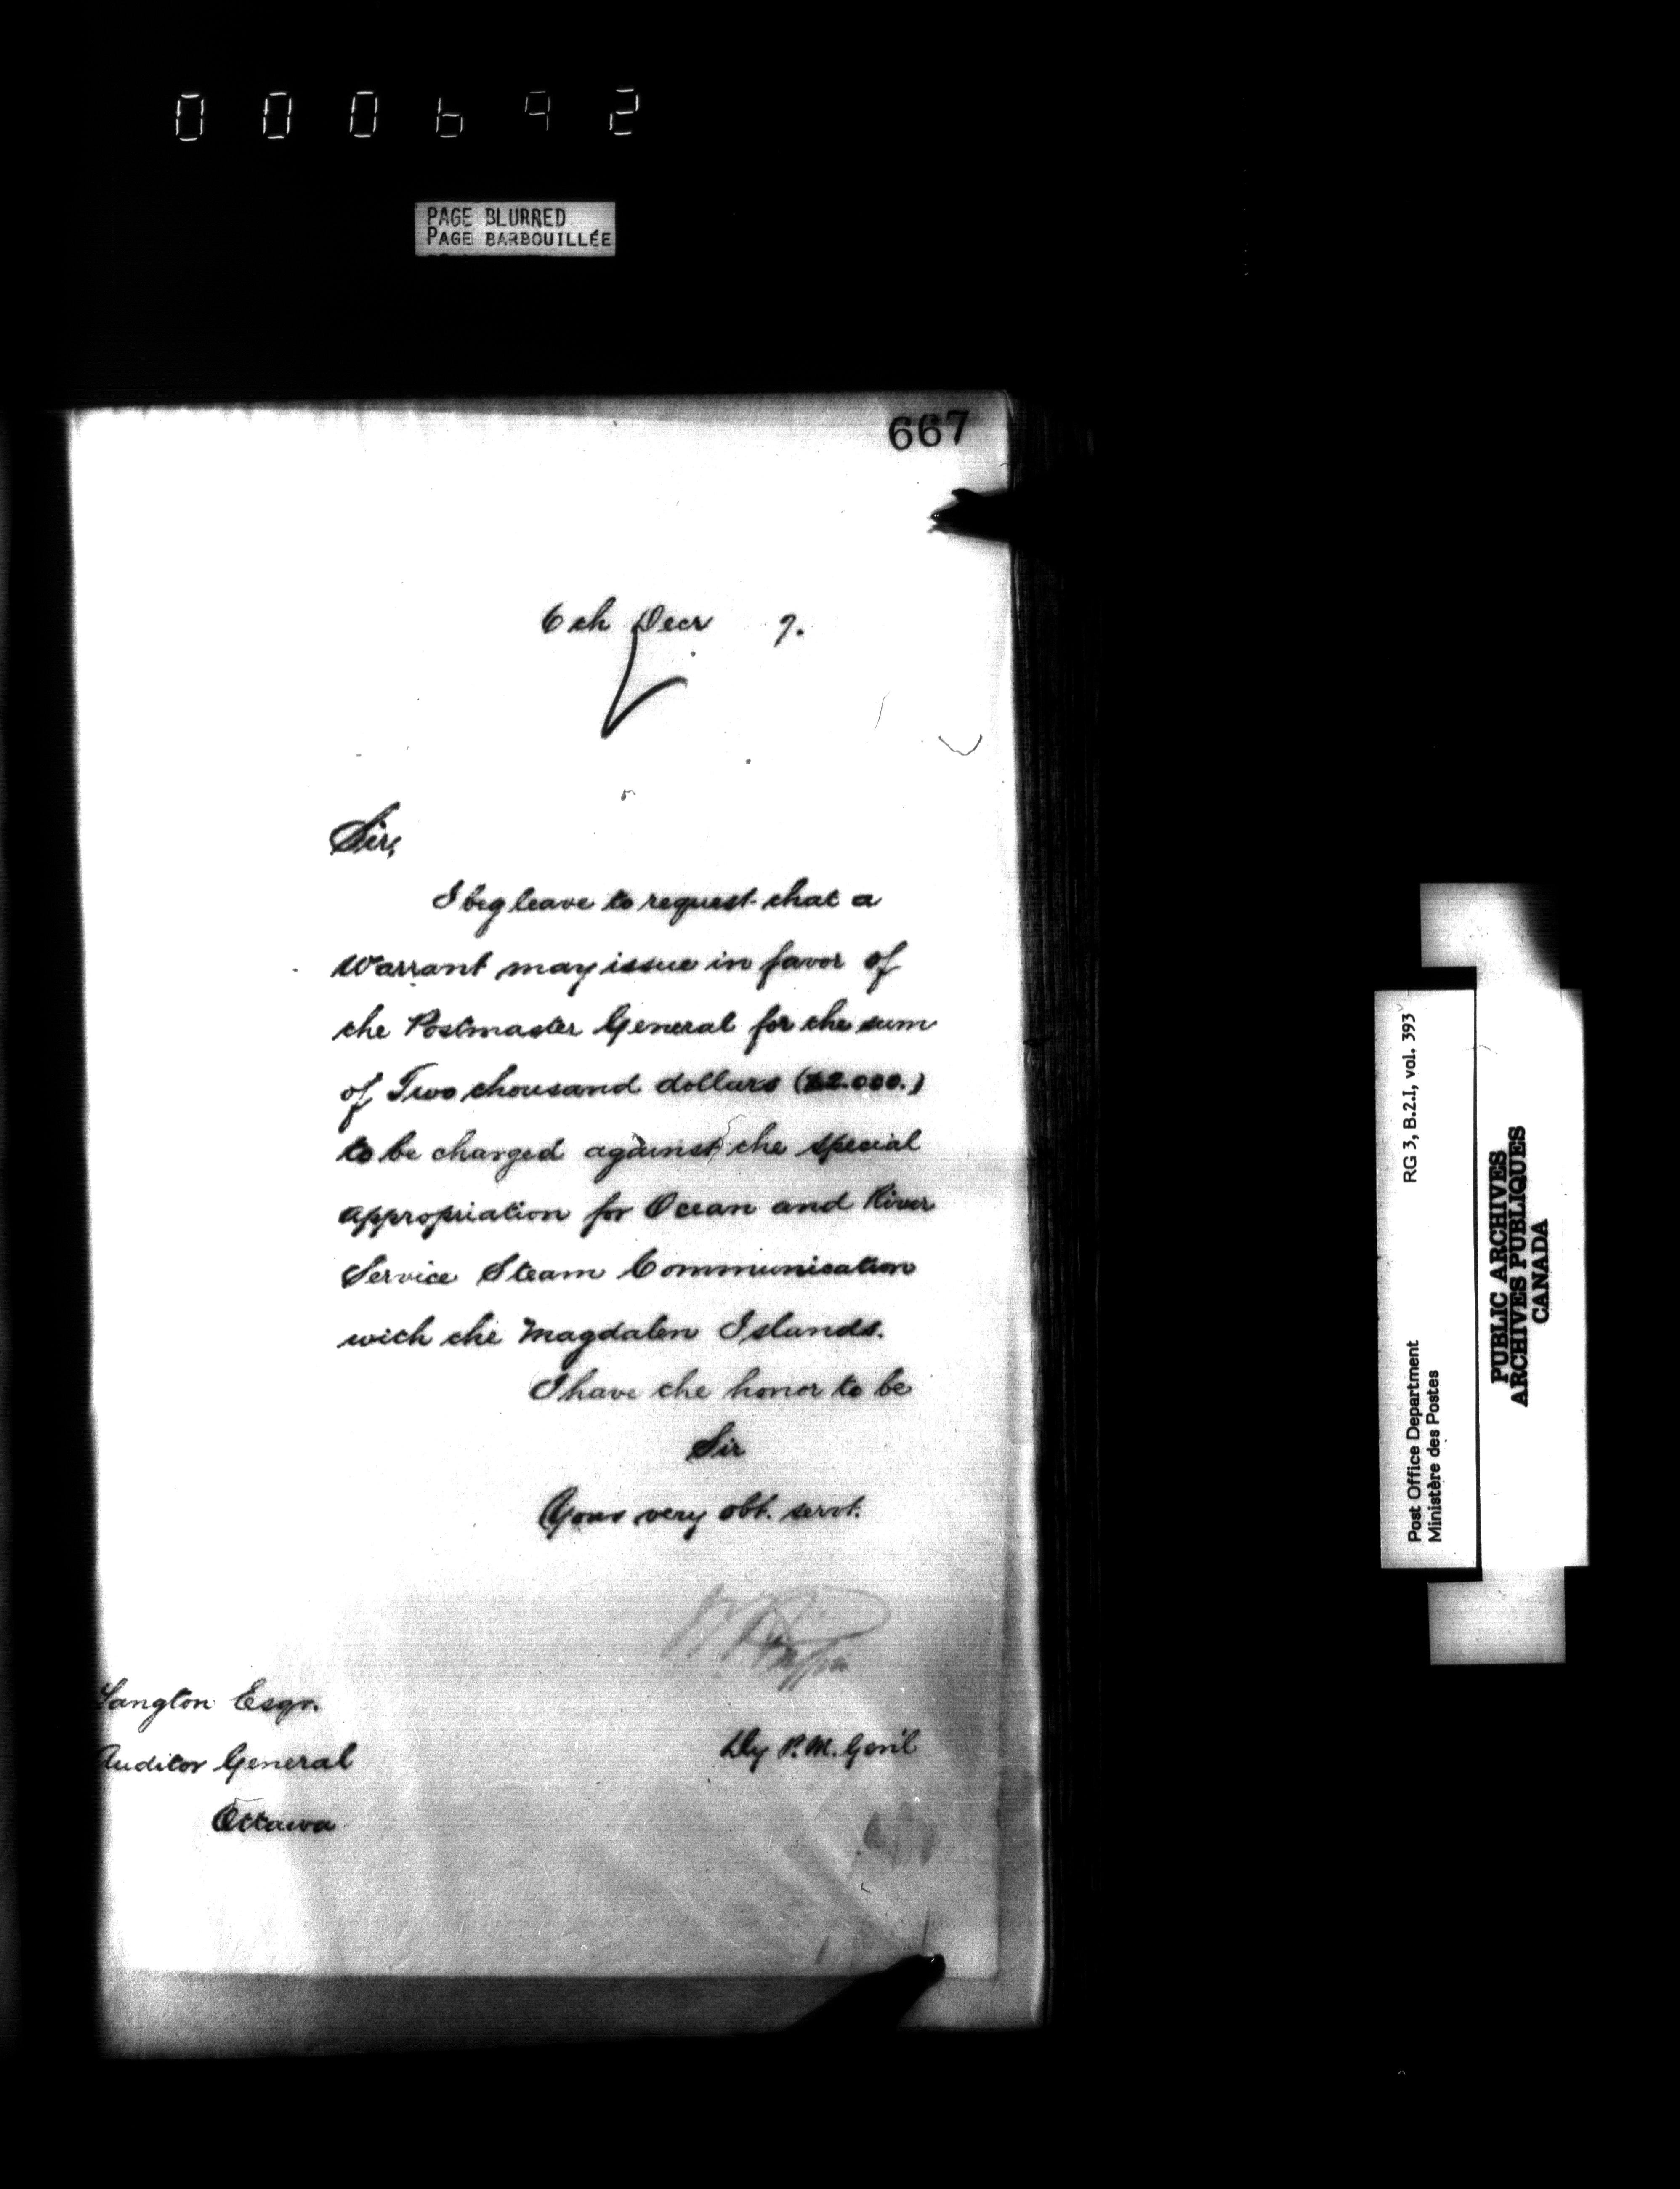 000692
PAGE BLURRED
PAGE BARBOUILLÉE
667
6th Decr 7.
Sir,
I beg leave to request that a
Warrant may issue in favor of
the Postmaster General for the sum
of Two thousand dollars ($2.000.)
to be charged against the special
appropriation for Ocean and River
Service Steam Communication
with the Magdalen Islands.
I have the honor to be
Sir
Yours very obt. servt.
Langton Esqr.
Auditor General
Ottawa
Dy P.M. Genl
Post Office Department
Ministère des Postes
RG 3, B.2.I, vol. 393
PUBLIC ARCHIVES
ARCHIVES PUBLIQUES
CANADA